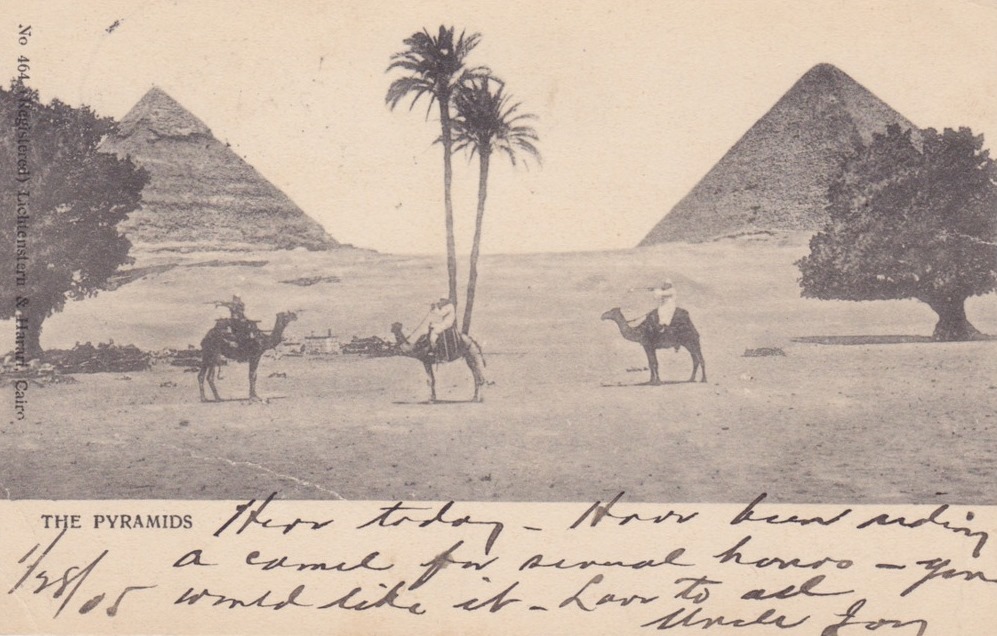 No 464 (Registered) Lichtenstern & Harari, Cairo
THE PYRAMIDS Here today - Have been riding
a camel for several hours - you
would like it - Love to all
1/28/05
Uncle Joy